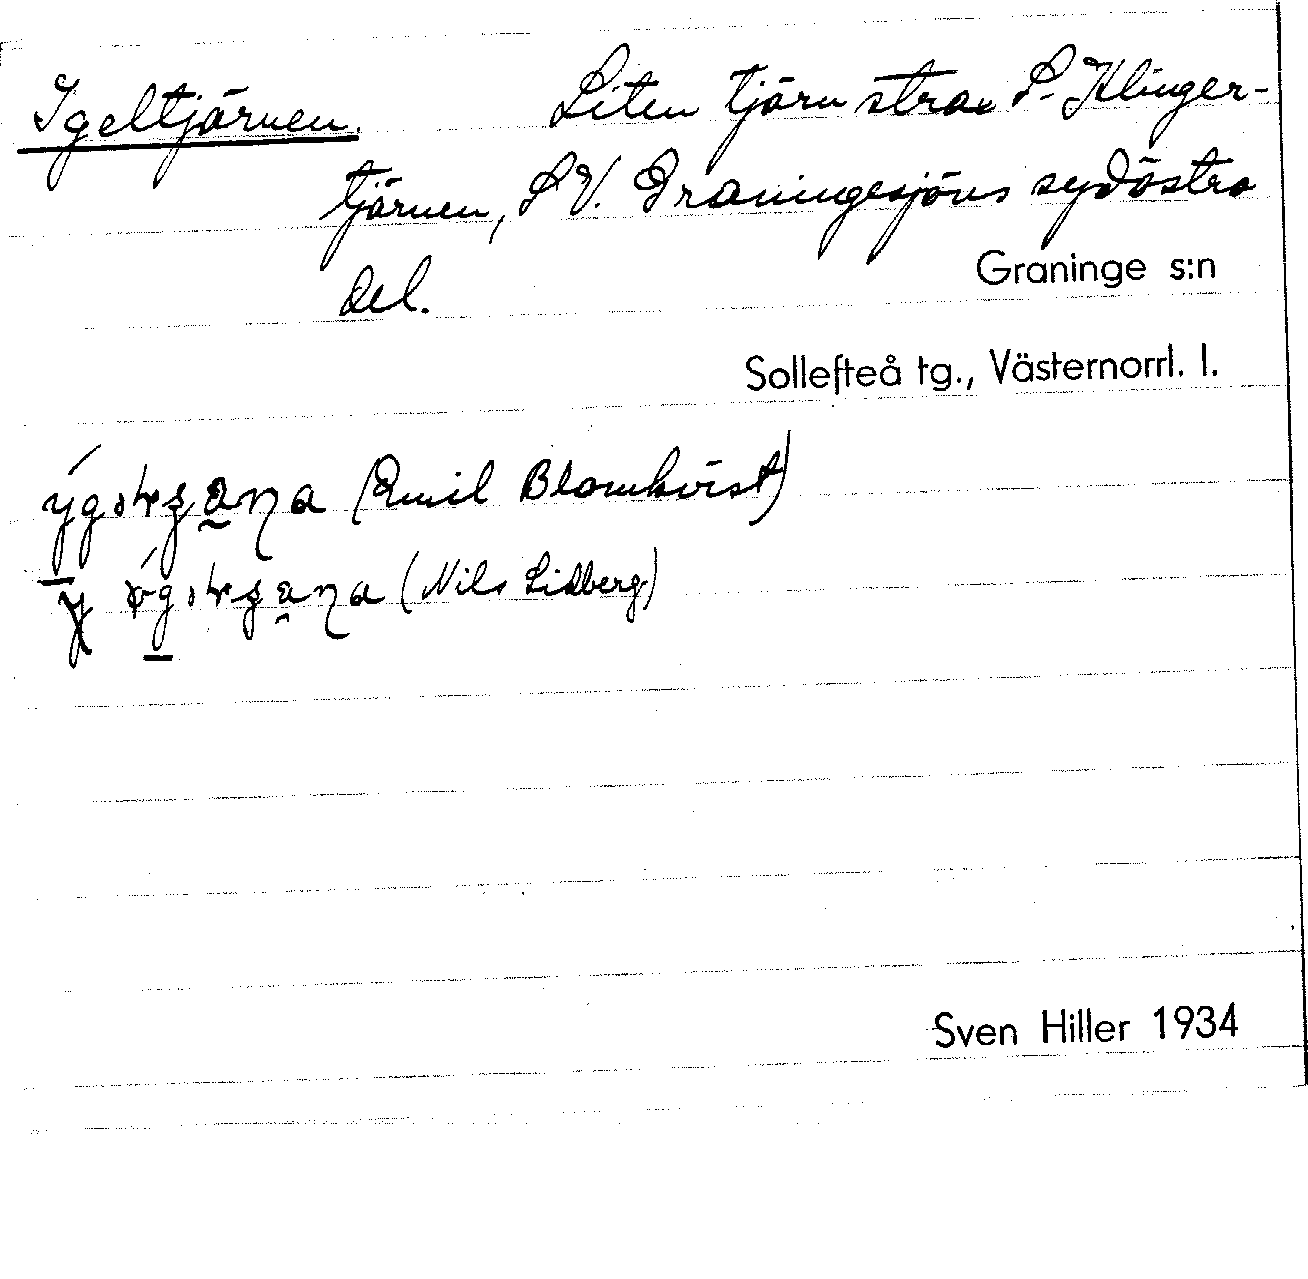 Igeltjärnen. Liten tjärn strax S. Klinger-
tjärnen, S V. Graningesjöns sydöstra
del.
Graninge s:n
Sollefteå tg., Västernorrl. l.
(Emil Blomkvist)
(Nils Lidberg)
Sven Hiller 1934